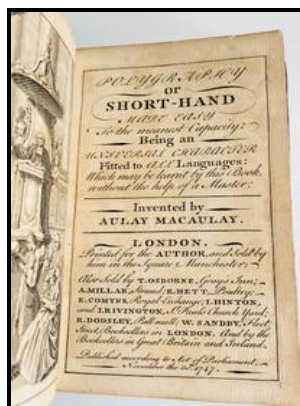 POLYGRAPHY
or
SHORT-HAND
MADE EASY
To the meanest Capacity:
Being an
UNIVERSAL CHARACTER
Fitted to ALL Languages:
Which may be learnt by this Book,
without the help of a Master.
Invented by
AULAY MACAULAY.
LONDON.
Printed for the AUTHOR, and Sold by
him in the Square Manchester;
Also Sold by T. OSBORNE, Grays Inn;
A. MILLAR, Strand; R. HETT, Poultry;
S. COMYNS, Royal Exchange; I. HINTON,
and I. RIVINGTON, St. Pauls Church Yard;
R. DODSLEY, Pall-mall; W. SANDBY, Fleet
Street, Booksellers in LONDON. And by the
Booksellers in Great Britain and Ireland.
Published according to Act of Parliament,
November the 1747.